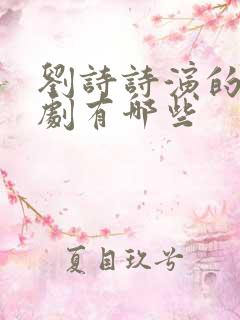 劉詩詩演的
劇有哪些
夏目玖兮